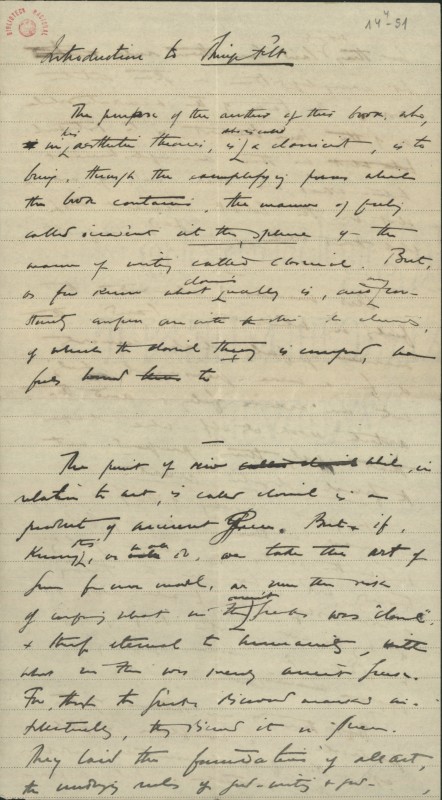 BIBLIOTECA NACIONAL
14⁴-51
Introduction to Things Felt
The purpose of the author of this book, who,
in his aesthetic theories, is a classicist, is to
bring, through the exemplifying poems which
this book contains, the manner of feeling
called within the sphere of the
manner of writing called classical. But,
as few know what classical really is, and
of which the classical theory is composed, he
feels to
The point of view which, in
relation to art, is called classical is a
product of ancient Greece. But if,
knowing this, we take the art of
Greece for our model, we run the risk
of confusing what in the ancient Greeks was "classical"
& therefore eternal to humanity, with
what in them was merely ancient Greece.
For, though the Greeks discovered
they discovered it in Greece.
They laid the foundations of all art,
the underlying rules of good-writing & good-